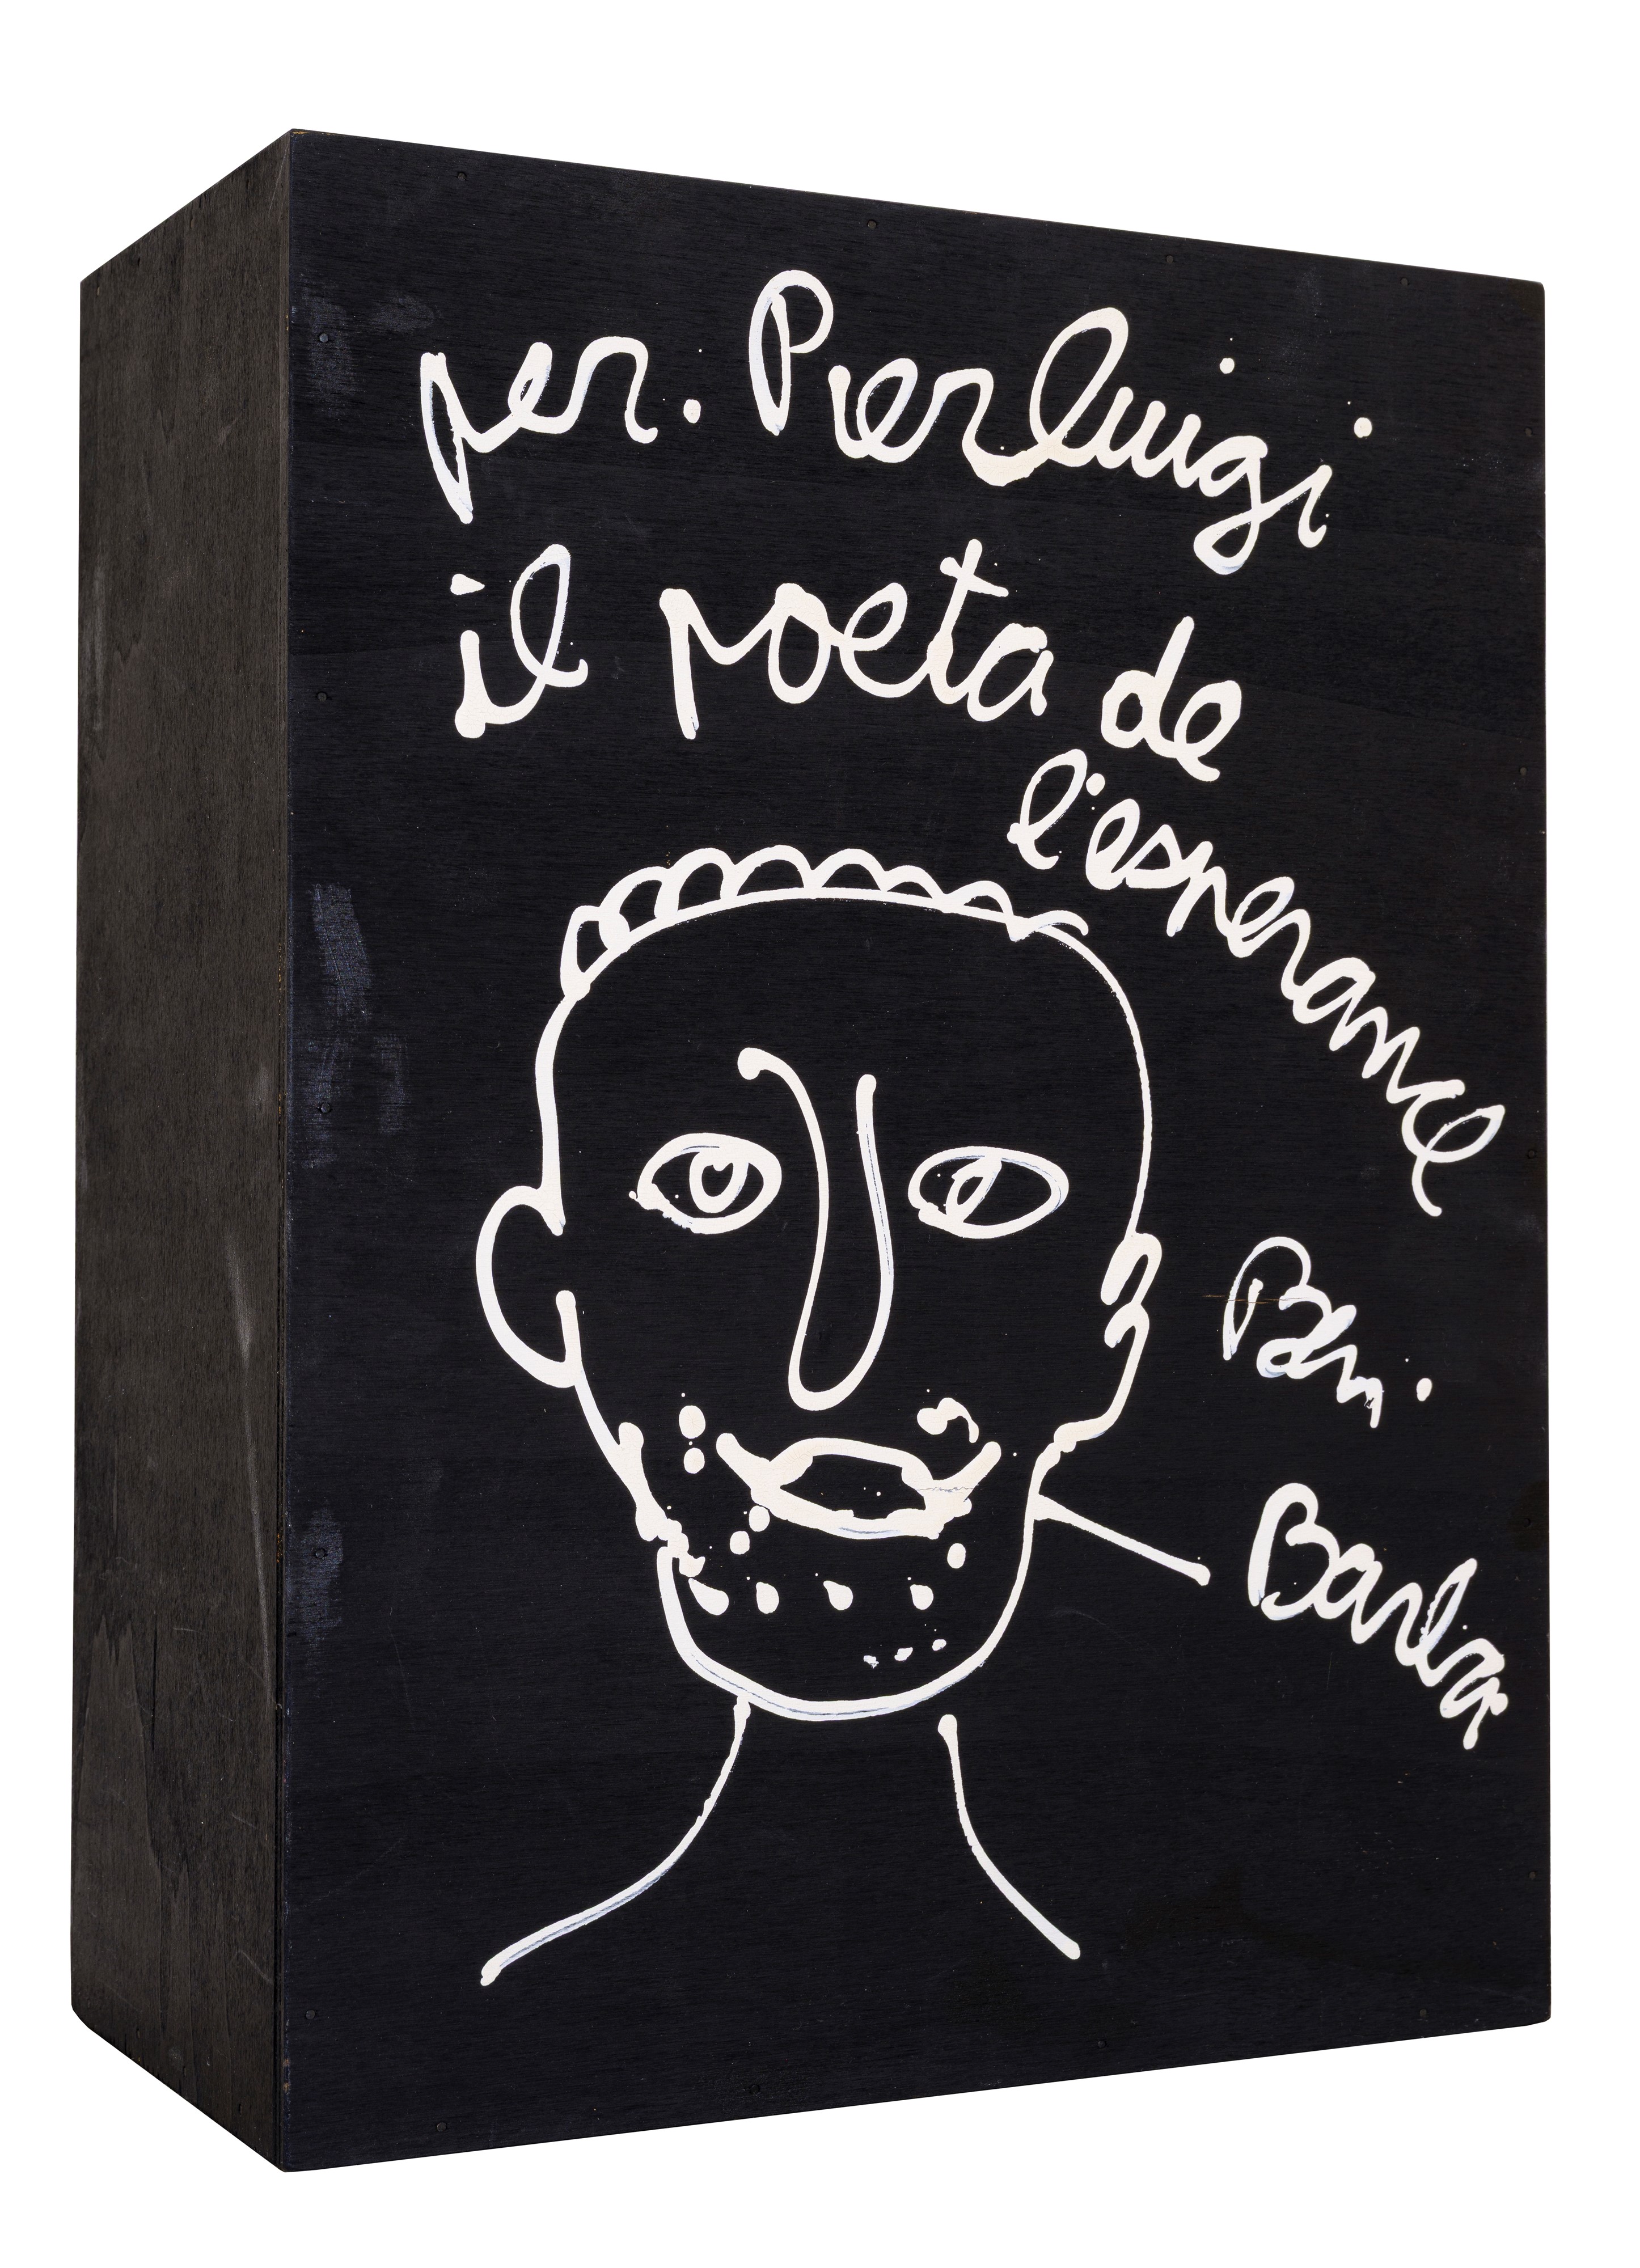 per. Pierluigi
il poeta de
l'esperance
Ben.
Barba